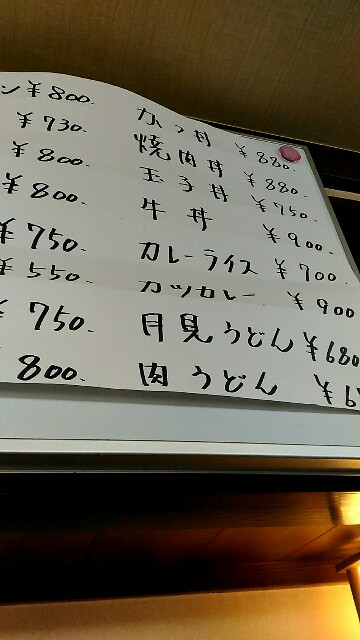 ン ¥800.
¥730.
¥800.
¥800.
¥750.
¥550.
¥750.
800.
かつ丼 ¥880.
焼肉丼 ¥880.
玉子丼 ¥750.
牛丼 ¥900.
カレーライス ¥700
カツカレー ¥900
月見うどん ¥680
肉うどん ¥6